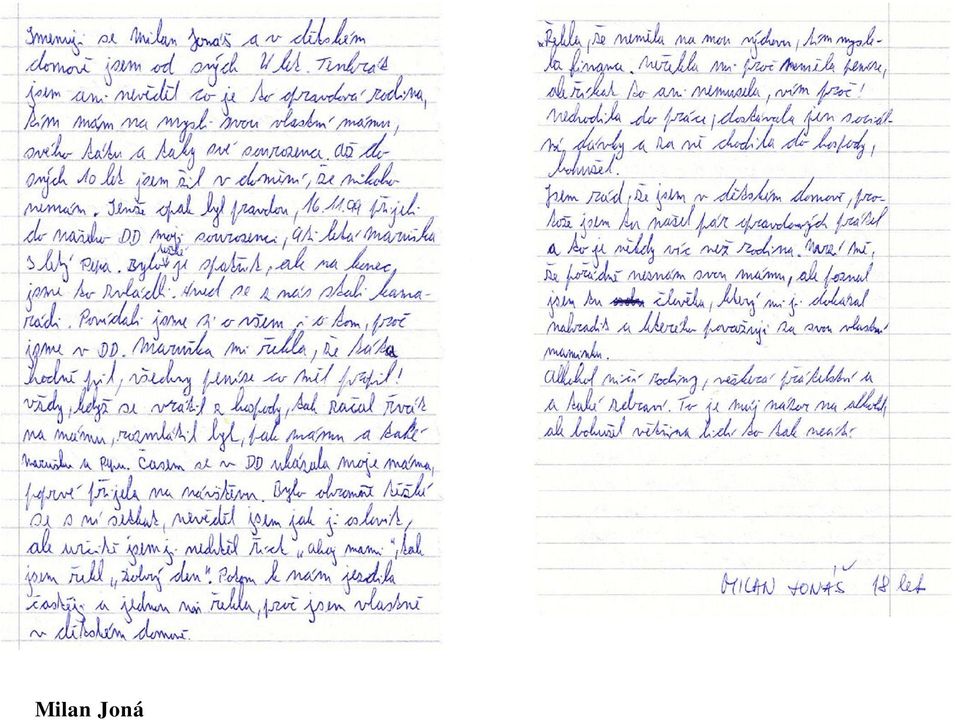 Jmenuji se Milan Jonáš a v dětském
domově jsem od svých let. Tenkrát
jsem ani nevěděl co je to opravdová rodina,
tím mám na mysli svou vlastní mámu,
svého tátu a taky své sourozence. Až do
svých 10 let jsem žil v domění, že nikoho
nemám. Jenže opak byl pravdou, 16.11.99 přijeli
do našeho DD moji sourozenci, letá Maruška
3 letý Pepa. Bylo těžké je spatřit, ale na konec
jsme to zvládli. Hned se z nás stali kama-
rádi. Povídali jsme si o všem, i o tom, proč
jsme v DD. Maruška mi řekla, že táta
hodně pil, všechny peníze co měl propil!
Vždy, když se vrátil z hospody, tak začal řvát
na mámu, rozmlátil byt, pak mámu a také
Marušku a Pepu. Časem se v DD ukázala moje máma,
poprvé přijela na návštěvu. Bylo ohromně těžké
se s ní setkat, nevěděl jsem jak ji oslovit,
ale určitě jsem ji nechtěl říct „ahoj mami“, tak
jsem řekl „dobrý den“. Potom k nám jezdila
častěji a jednou mi řekla, proč jsem vlastně
v dětském domově.
Řekla, že neměla na mou výchovu, tím mysle-
la finance. Neřekla mi proč neměla peníze,
ale říkat to ani nemusela, vím proč!
Nechodila do práce, dostávala jen sociál-
ní dávky a za ně chodila do hospody,
bohužel.
Jsem rád, že jsem v dětském domově, pro-
tože jsem tu našel pár opravdových přátel
a to je někdy víc než rodina. Mrzí mě,
že pořádně neznám svou mámu, ale poznal
jsem tu člověka, který mi ji dokázal
nahradit a kterého považuji za svou vlastní
maminku.
Alkohol ničí rodiny, veškerá přátelství a
a také zdraví. To je můj názor na alkohol,
ale bohužel většina lidí to tak necítí.
MILAN JONÁŠ 18 let
Milan Joná